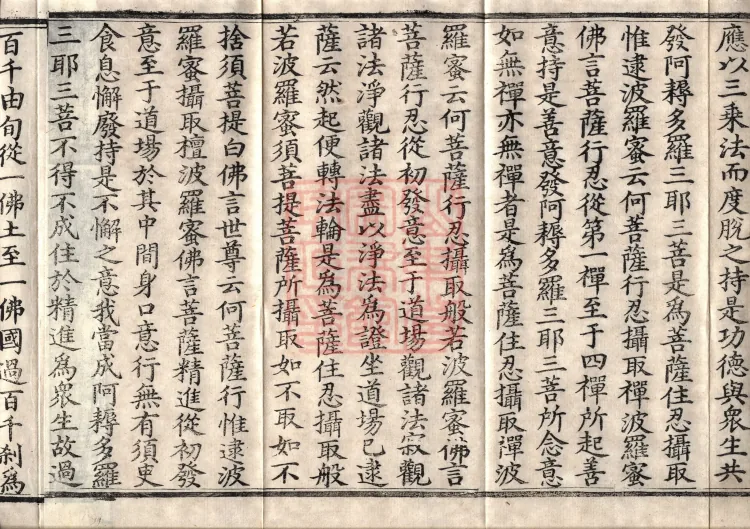 應以三乘法而度脫之持是功德與眾生共
發阿耨多羅三耶三菩是為菩薩住忍攝取
惟逮波羅蜜云何菩薩行忍攝取禪波羅蜜
佛言菩薩行忍從第一禪至于四禪所起善
意持是善意發阿耨多羅三耶三菩所念意
如無禪亦無禪者是為菩薩住忍攝取禪波
羅蜜云何菩薩行忍攝取般若波羅蜜佛言
菩薩行忍從初發意至于道場觀諸法寂觀
諸法淨觀諸法盡以淨法為證坐道場已逮
薩云然起便轉法輪是為菩薩住忍攝取般
若波羅蜜須菩提菩薩所攝取如不取如不
捨須菩提白佛言世尊云何菩薩行惟逮波
羅蜜攝取檀波羅蜜佛言菩薩精進從初發
意至于道場於其中間身口意行無有須臾
食息懈廢持是不懈之意我當成阿耨多羅
三耶三菩不得不成住於精進為眾生故過
百千由旬從一佛土至一佛國過百千剎為